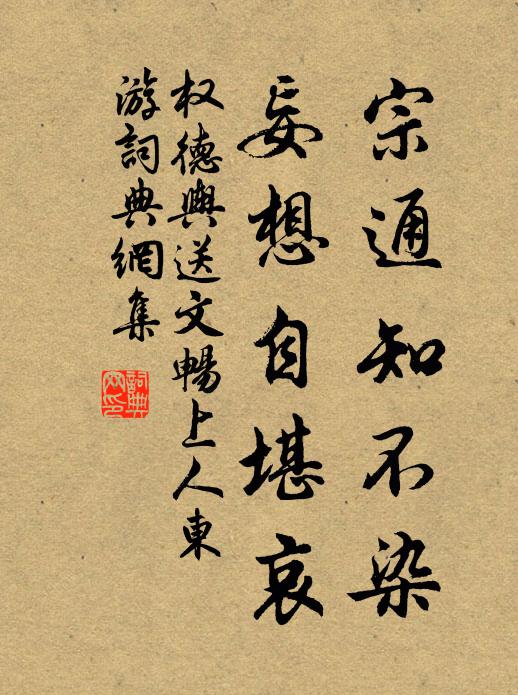 宗通知不染
妄想自堪哀
权德舆送文暢上人東
游詞典網集
詞典
网印